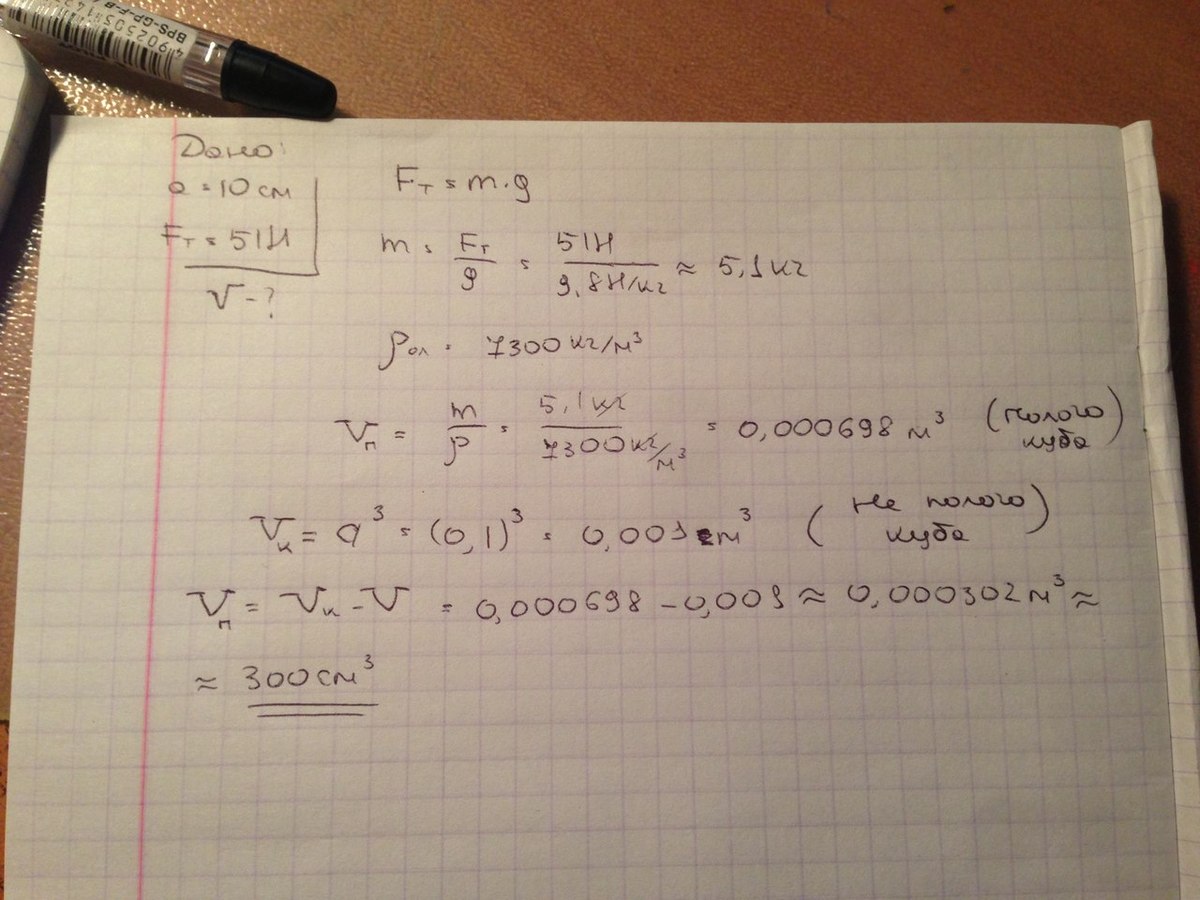 4902505114
BPS-GP-F-B
Дано:
a = 10 см
Fт = 51 Н
V - ?
Fт = m·g
m = Fт/g = 51Н/9,8Н/кг ≈ 5,1 кг
ρол = 7300 кг/м³
Vп = m/ρ = 5,1кг/7300кг/м³ = 0,000698 м³ (полого куба)
Vк = a³ = (0,1)³ = 0,001 м³ (не полого куба)
Vп = Vк - V = 0,000698 - 0,001 ≈ 0,000302 м³ ≈
≈ 300 см³